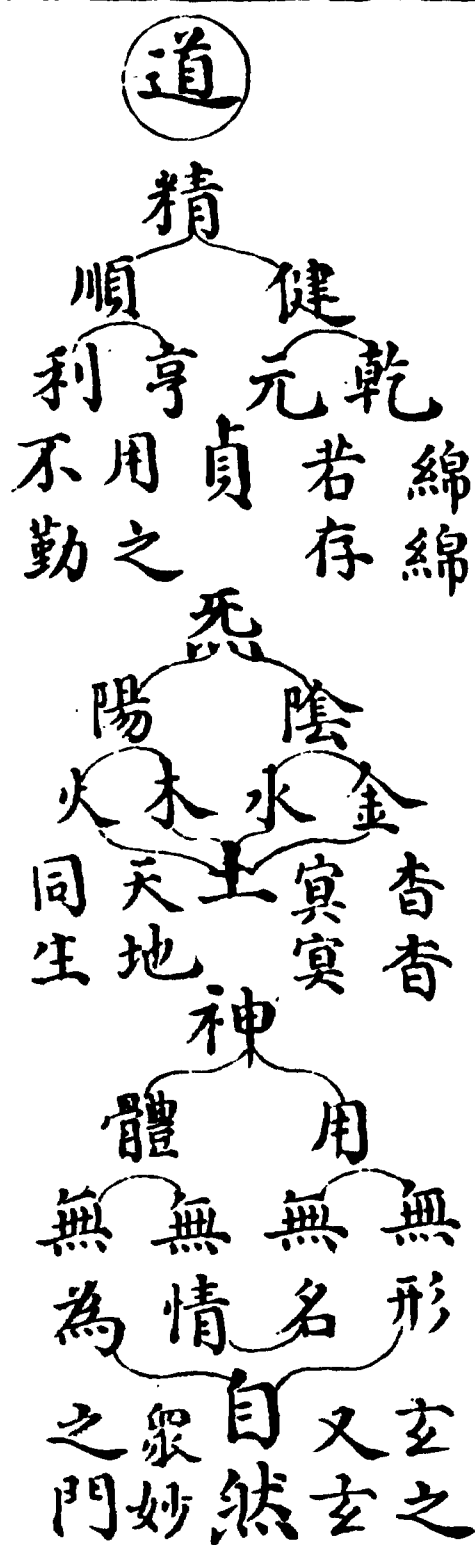 道
精
健 順
乾 元 亨 利
貞
綿綿
若存
用之
不勤
炁
陰 陽
金 水 木 火
土
杳杳
冥冥
天地
同生
神
用 體
無形
無名
無情
無為
自然
玄之
又玄
眾妙
之門